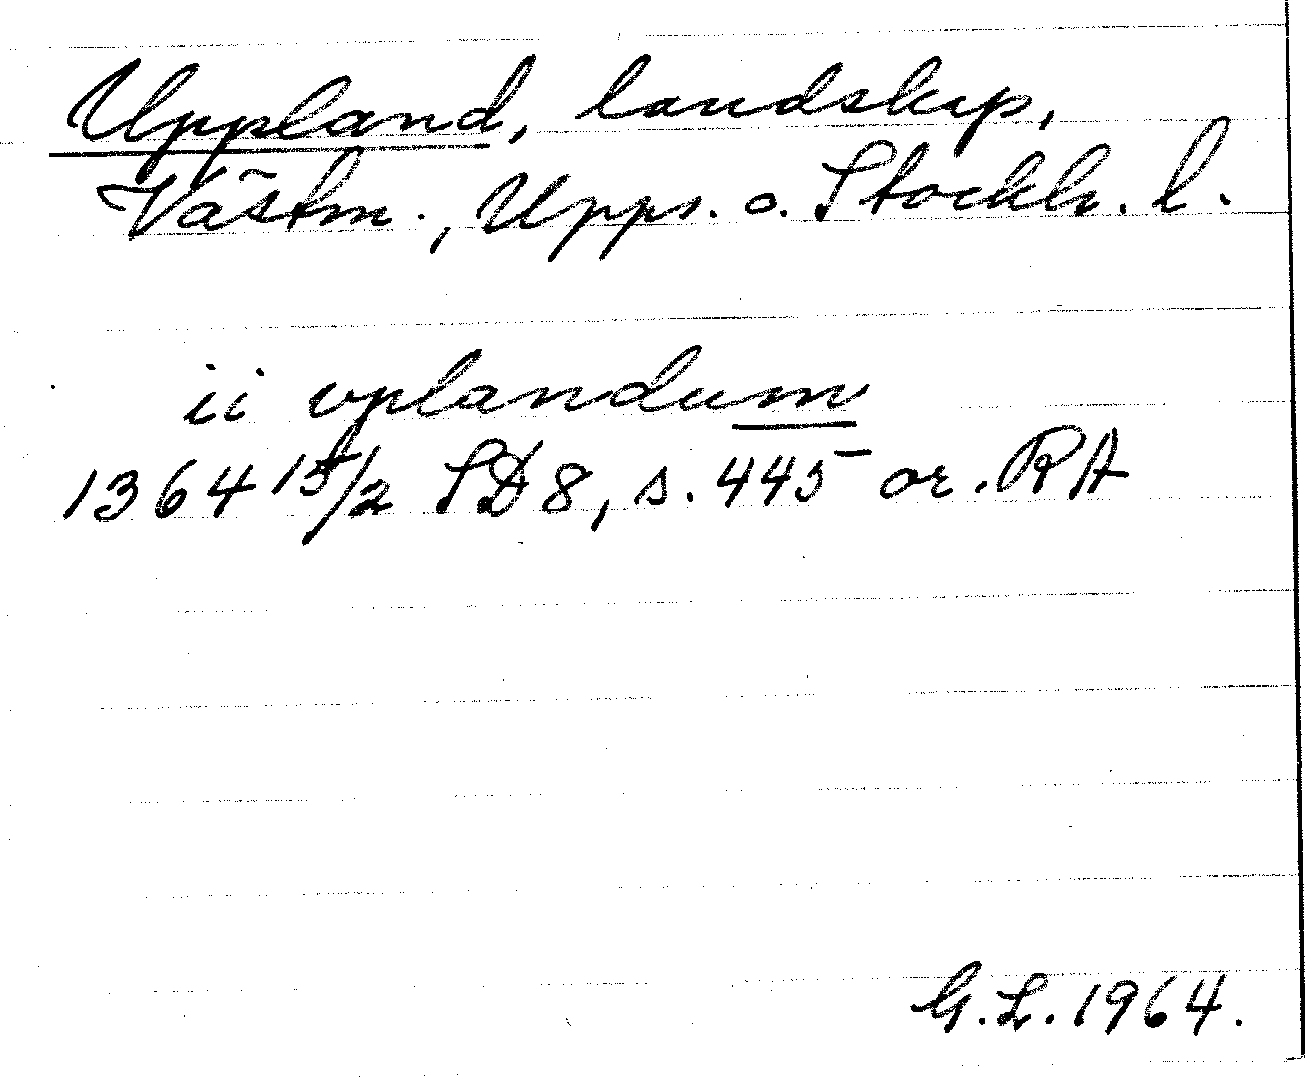 Uppland, landskap,
Västm., Upps. o. Stockh. l.
ii vplandum
1364 15/2 SD 8, s. 445 or. RA
G. L. 1964.